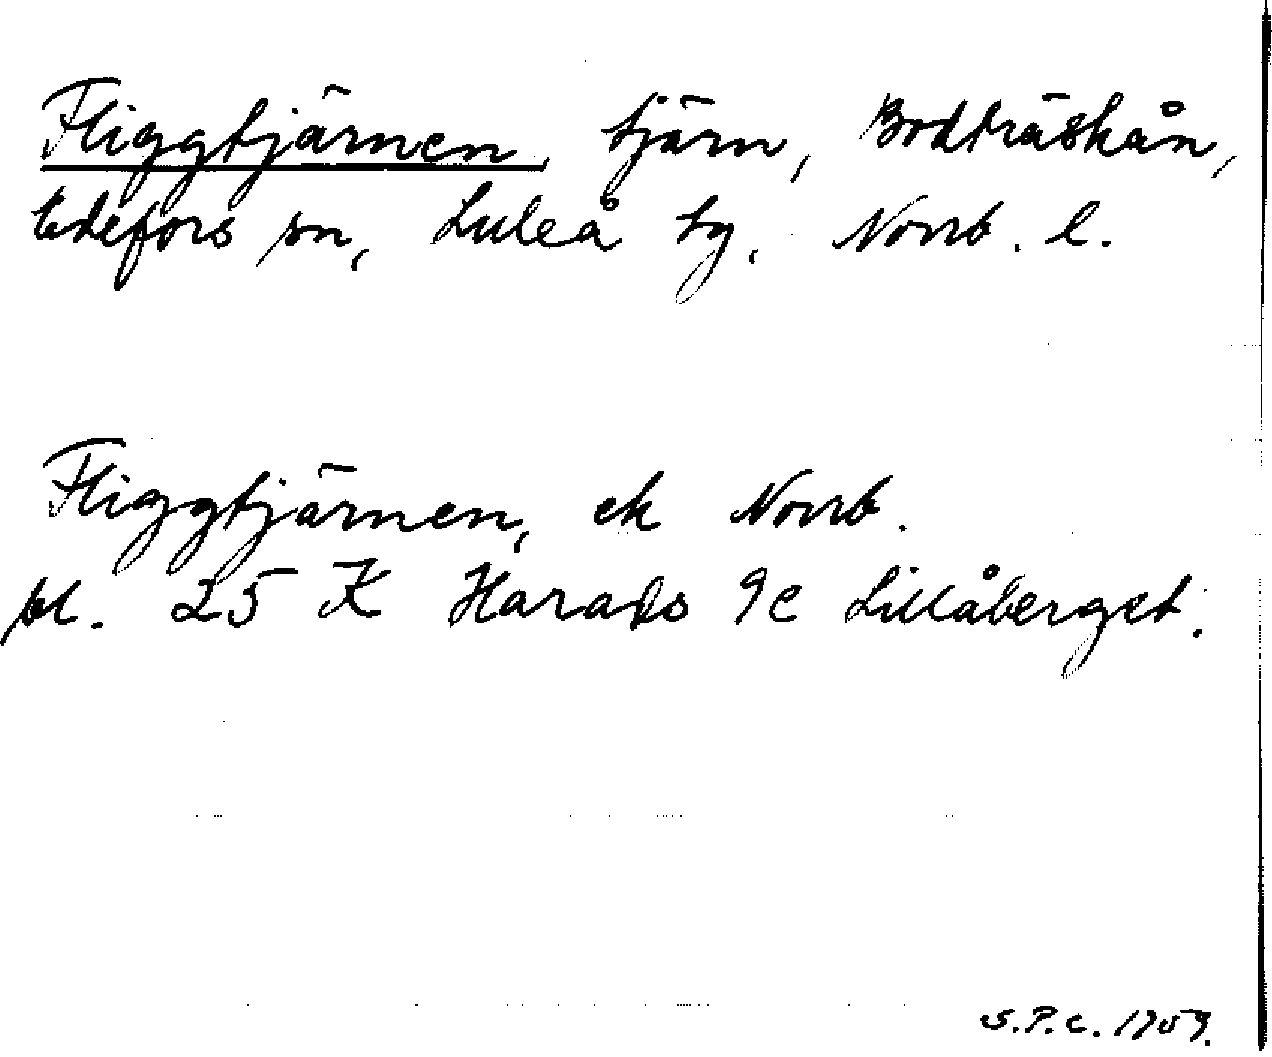 Fliggtjärnen, tjärn, Bodträskån,
Edefors sn, Luleå tg, Norrb. l.
Fliggtjärnen, ek Norrb.
bl. 25 K Harads 9c Lillåberget.
S.P.C.